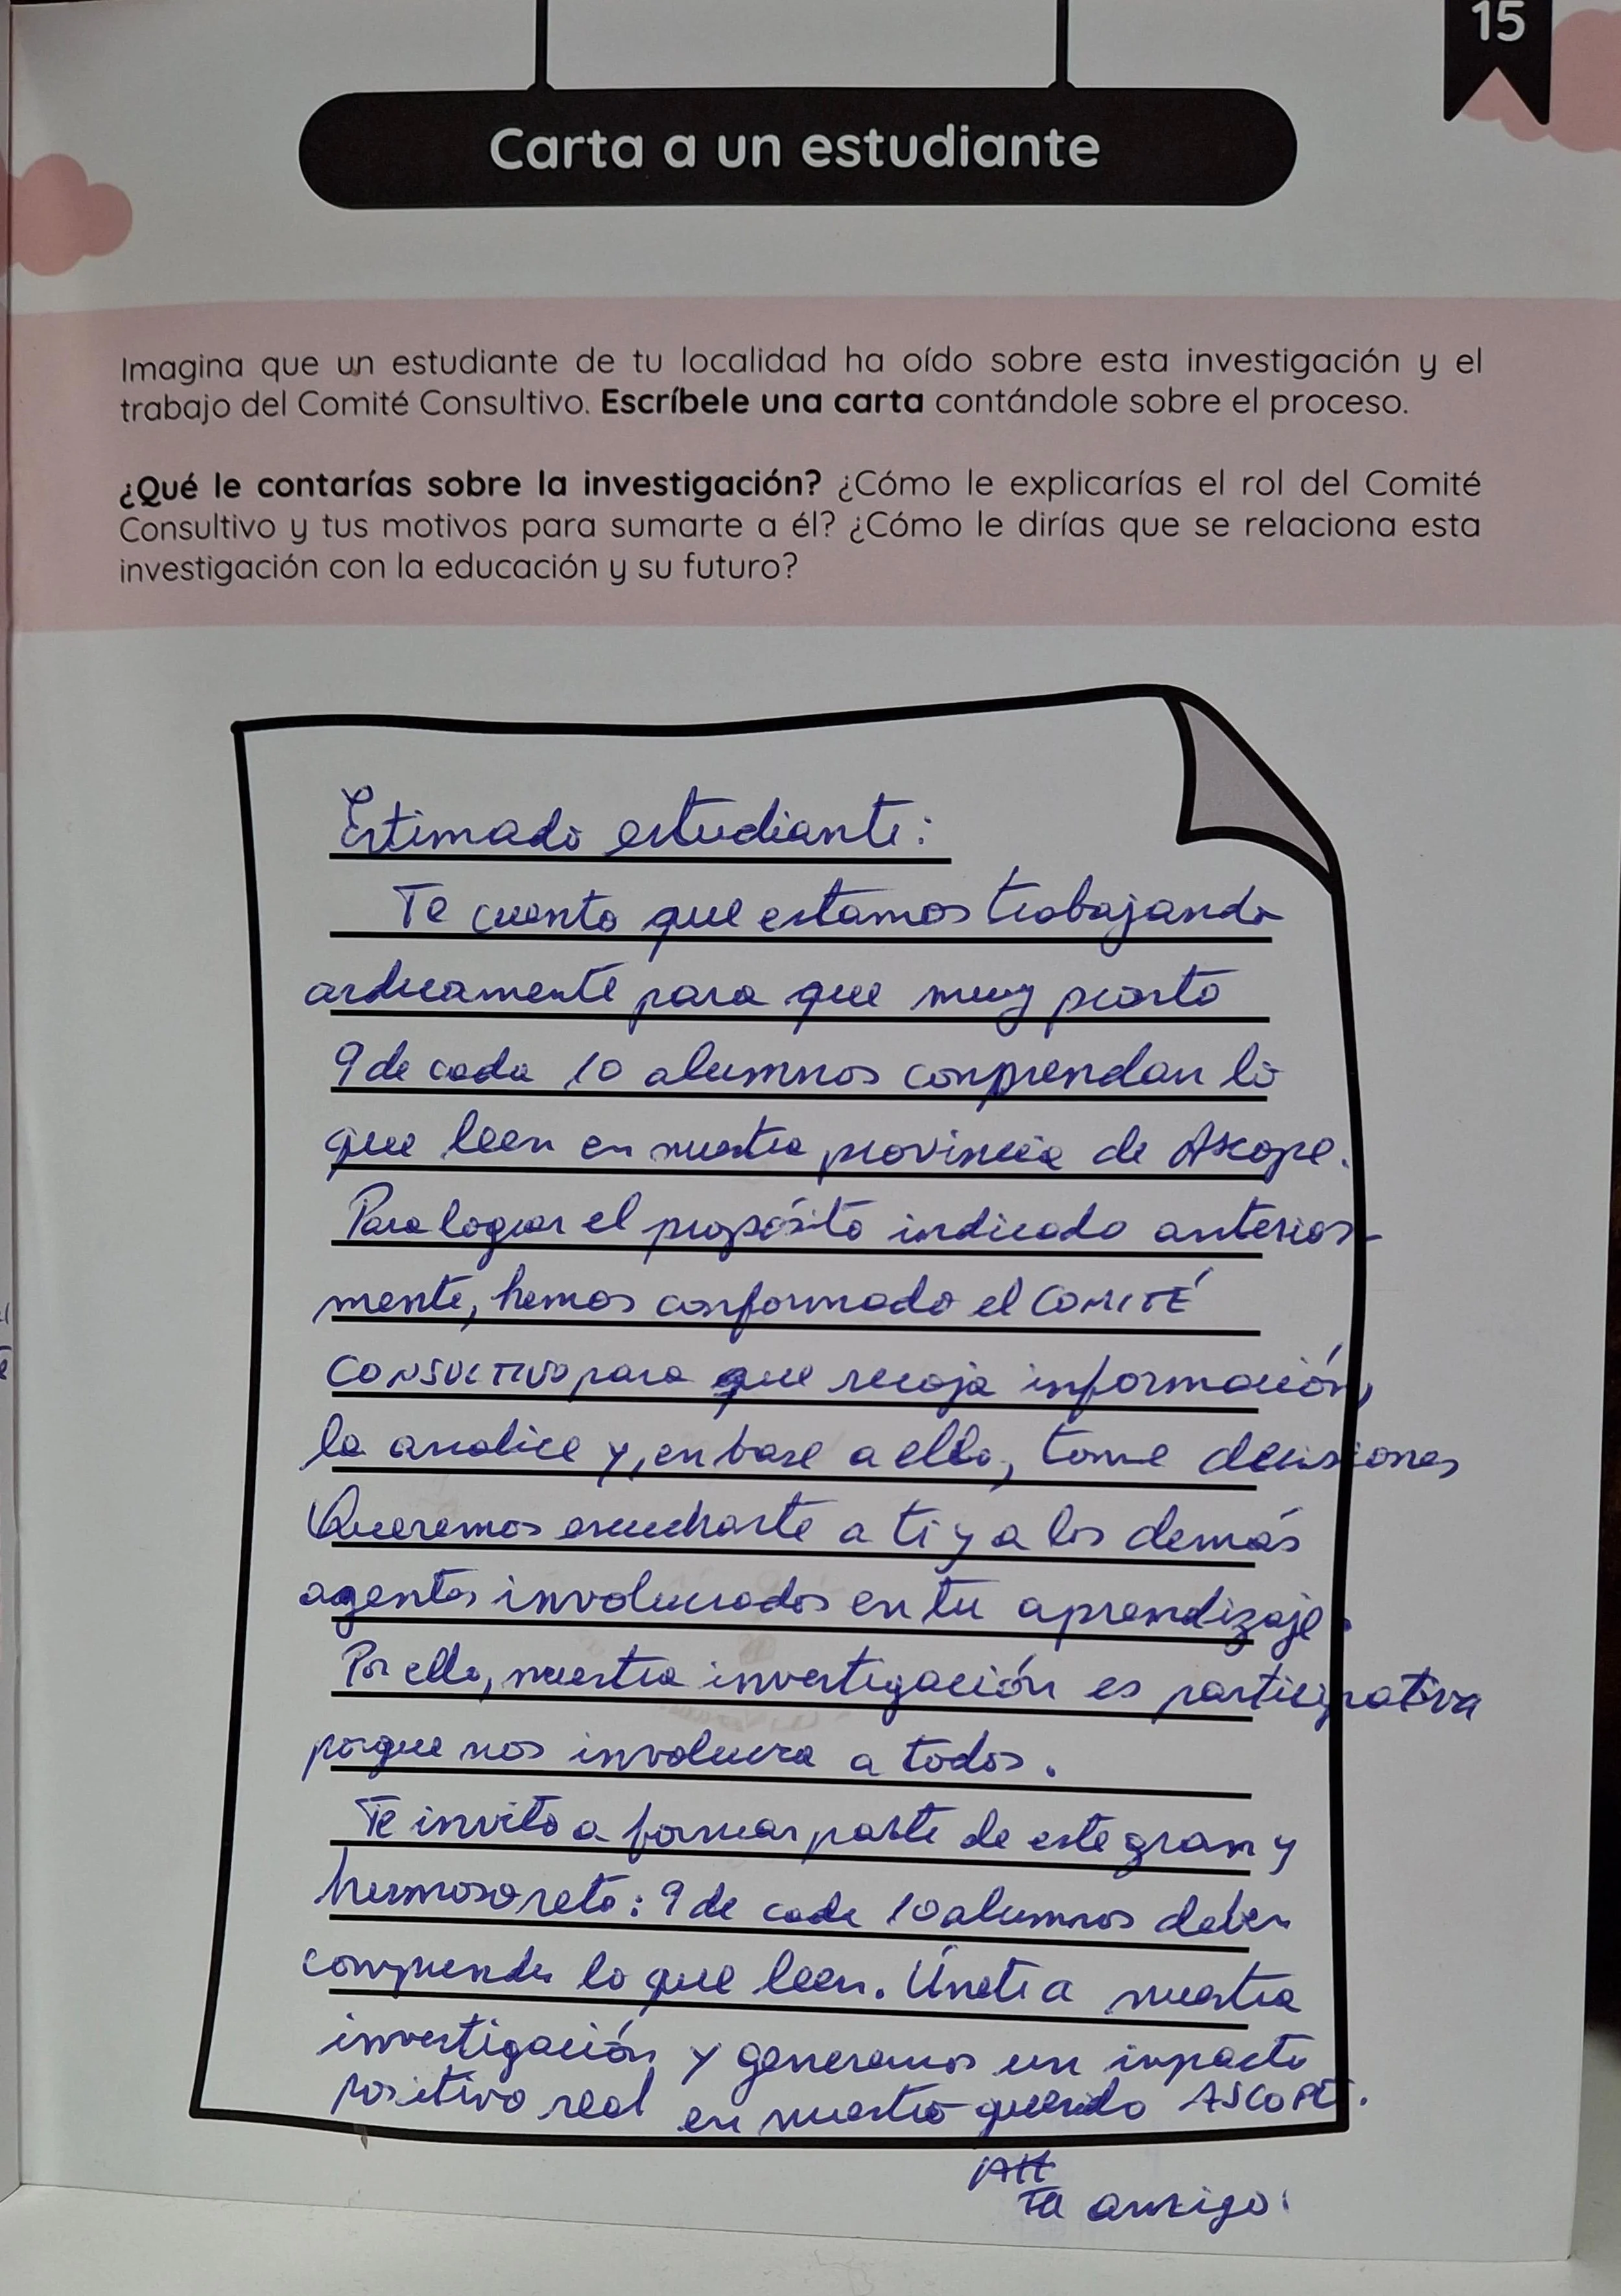 15
Carta a un estudiante
Imagina que un estudiante de tu localidad ha oído sobre esta investigación y el
trabajo del Comité Consultivo. Escríbele una carta contándole sobre el proceso.
¿Qué le contarías sobre la investigación? ¿Cómo le explicarías el rol del Comité
Consultivo y tus motivos para sumarte a él? ¿Cómo le dirías que se relaciona esta
investigación con la educación y su futuro?
Estimado estudiante:
Te cuento que estamos trabajando
arduamente para que muy pronto
9 de cada 10 alumnos comprendan lo
que leen en nuestra provincia de Ascope.
Para lograr el propósito indicado anterior-
mente, hemos conformado el COMITÉ
CONSULTIVO para que recoja información,
la analice y, en base a ello, tome decisiones
Queremos escucharte a ti y a los demás
agentes involucrados en tu aprendizaje.
Por ello, nuestra investigación es participativa
porque nos involucra a todos.
Te invito a formar parte de este gran y
hermoso reto: 9 de cada 10 alumnos deben
comprender lo que leen. Únete a nuestra
investigación y generamos un impacto
positivo real en nuestro querido ASCOPE.
Att
Tu amigo: